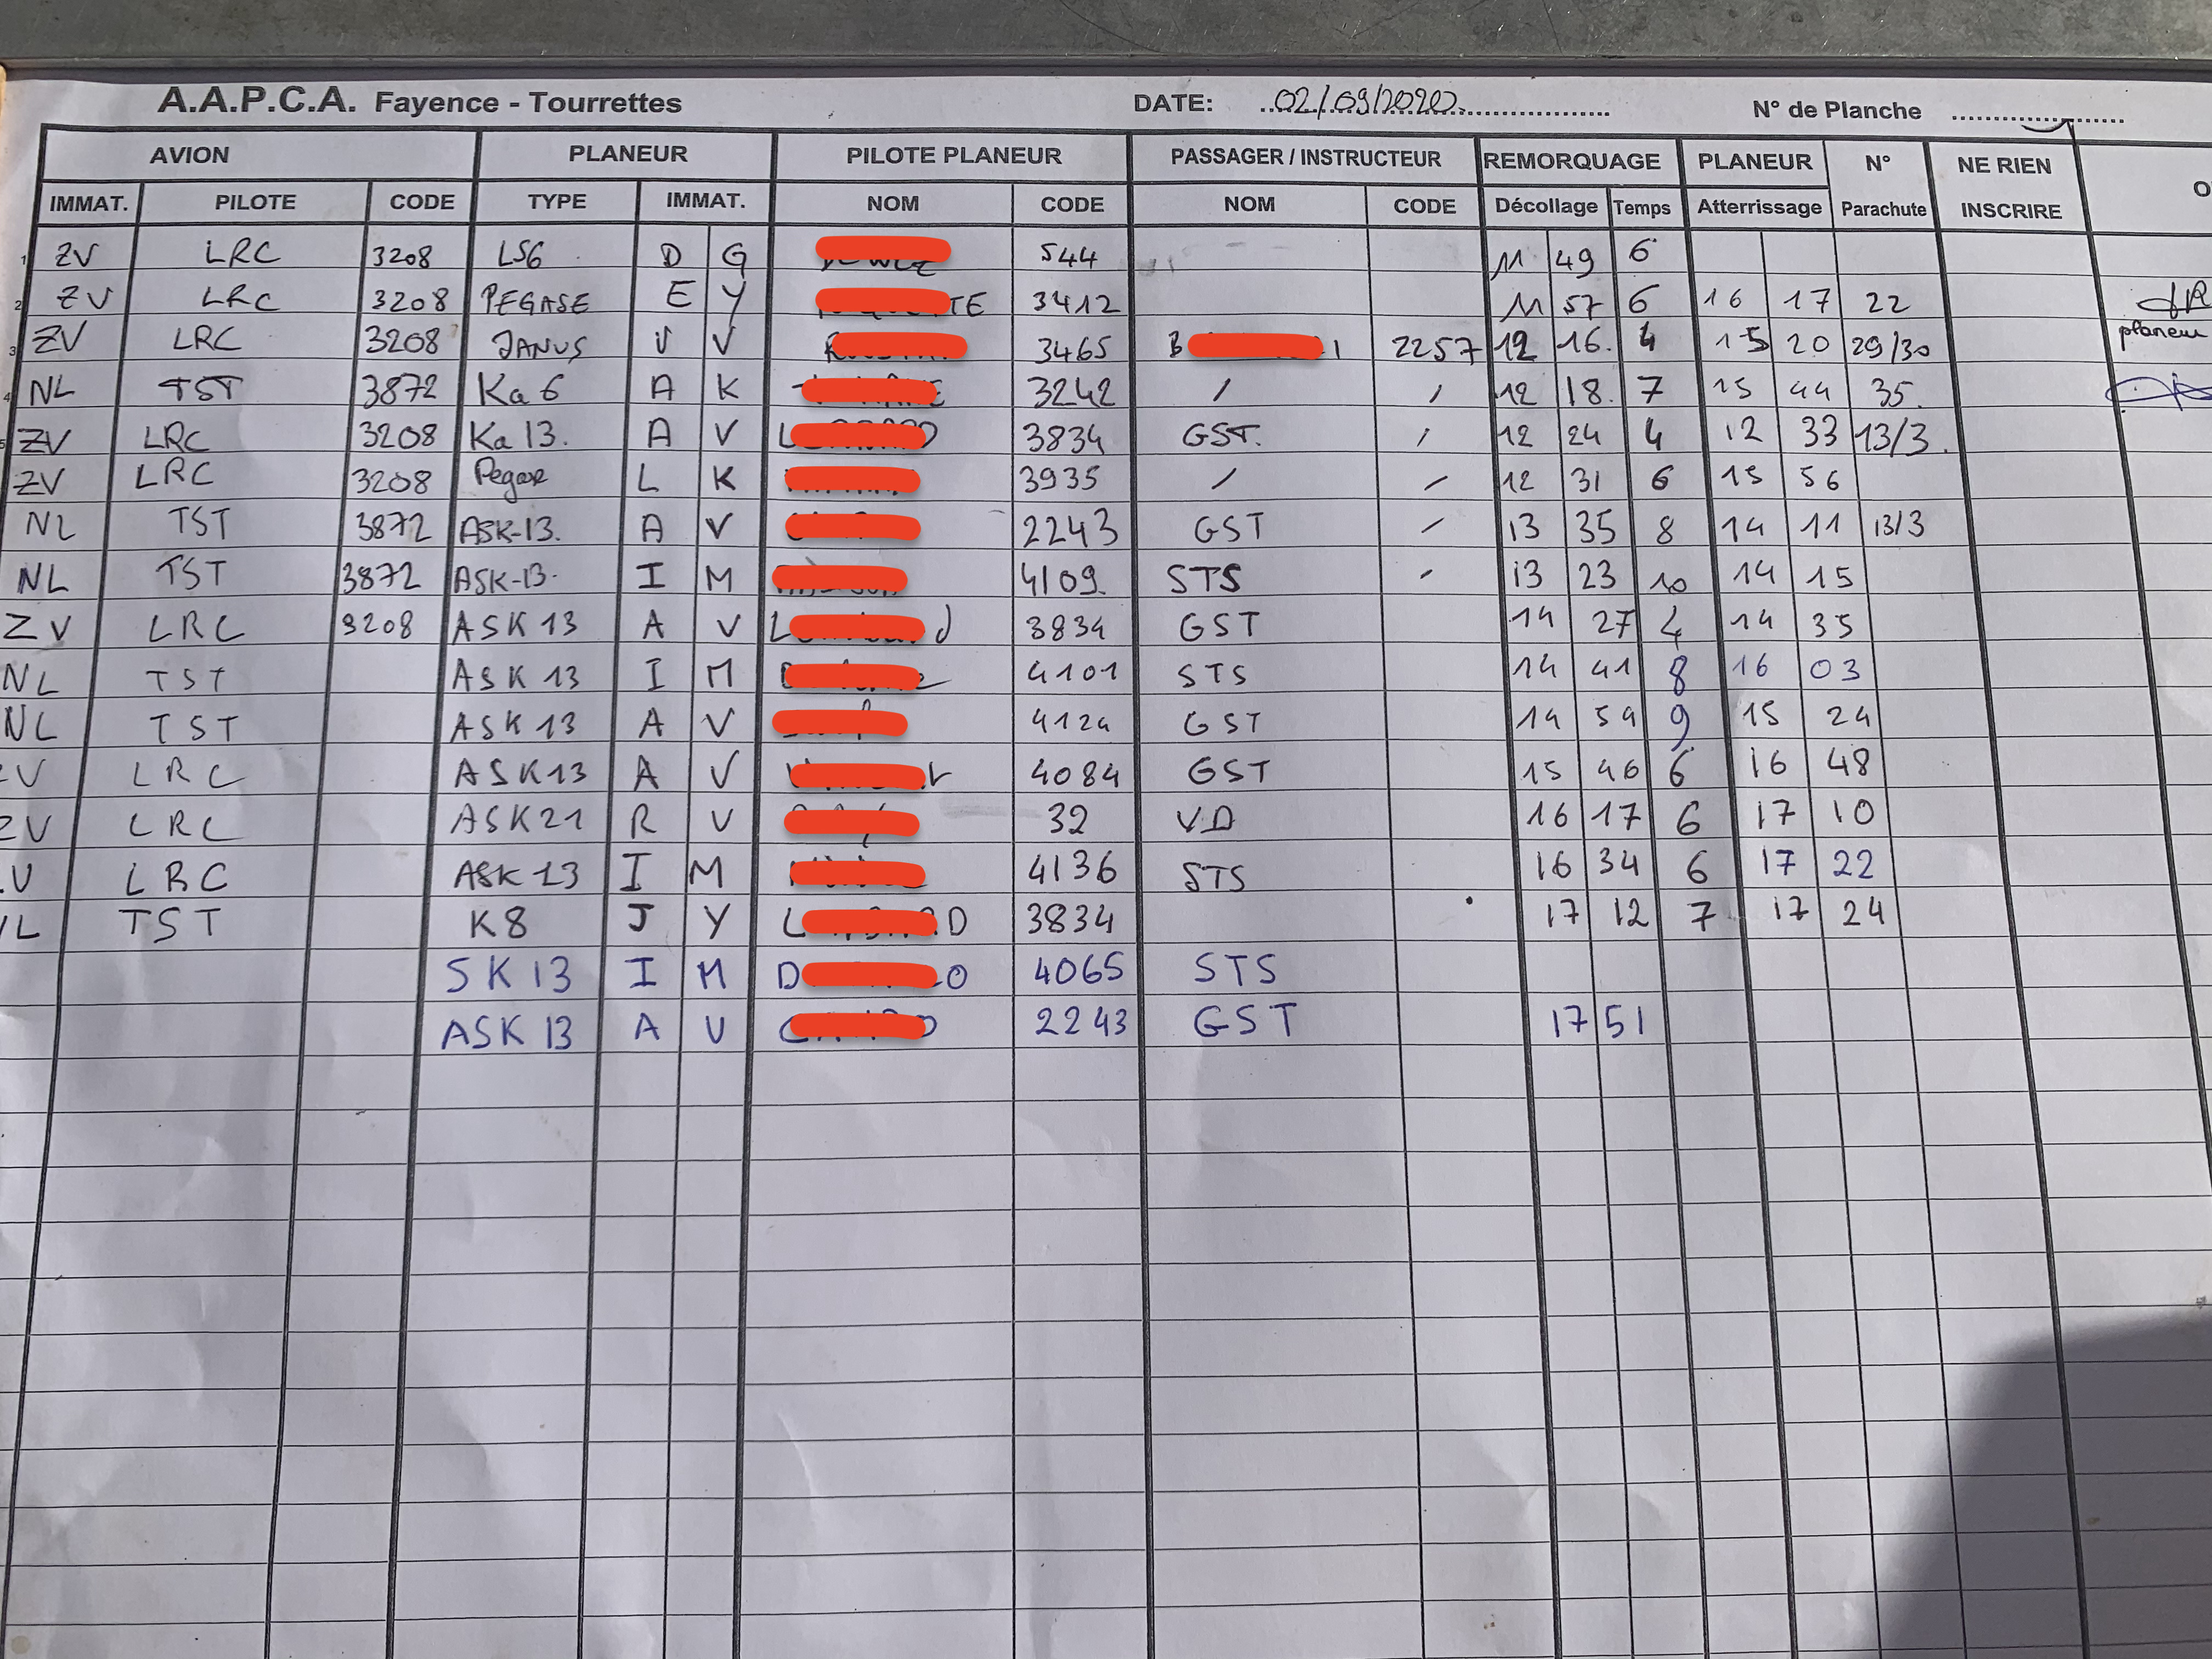 A.A.P.C.A. Fayence - Tourrettes DATE: 02/09/2020 N° de Planche
AVION PLANEUR PILOTE PLANEUR PASSAGER / INSTRUCTEUR REMORQUAGE PLANEUR N° NE RIEN
IMMAT. PILOTE CODE TYPE IMMAT. NOM CODE NOM CODE Décollage Temps Atterrissage Parachute INSCRIRE O
1 ZV LRC 3208 LS6 D G 544 11 49 6
2 ZV LRC 3208 PEGASE E Y TE 3412 11 57 6 16 17 22
3 ZV LRC 3208 JANUS V V 3465 B I 2257 12 16. 4 15 20 29/30 planeur
4 NL TST 3872 Ka 6 A K 3242 / / 12 18. 7 15 44 35.
5 ZV LRC 3208 Ka 13. A V L D 3834 GST. / 12 24 4 12 33 13/3.
ZV LRC 3208 L K 3935 / / 12 31 6 15 56
NL TST 3872 ASK-13. A V 2243 GST / 13 35 8 14 11 13/3
NL TST 3872 ASK-13. I M 4109. STS / 13 23 10 14 15
ZV LRC 3208 ASK 13 A V L d 3834 GST 14 27 4 14 35
NL TST ASK 13 I M 4101 STS 14 41 8 16 03
NL TST ASK 13 A V 4124 GST 14 54 9 15 24
ZV LRC ASK13 A V 4084 GST 15 46 6 16 48
ZV LRC ASK21 R V 32 VD 16 17 6 17 10
V LRC ASK 13 I M 4136 STS 16 34 6 17 22
L TST K8 J Y L D 3834 17 12 7 17 24
SK 13 I M D O 4065 STS
ASK 13 A V 2243 GST 17 51